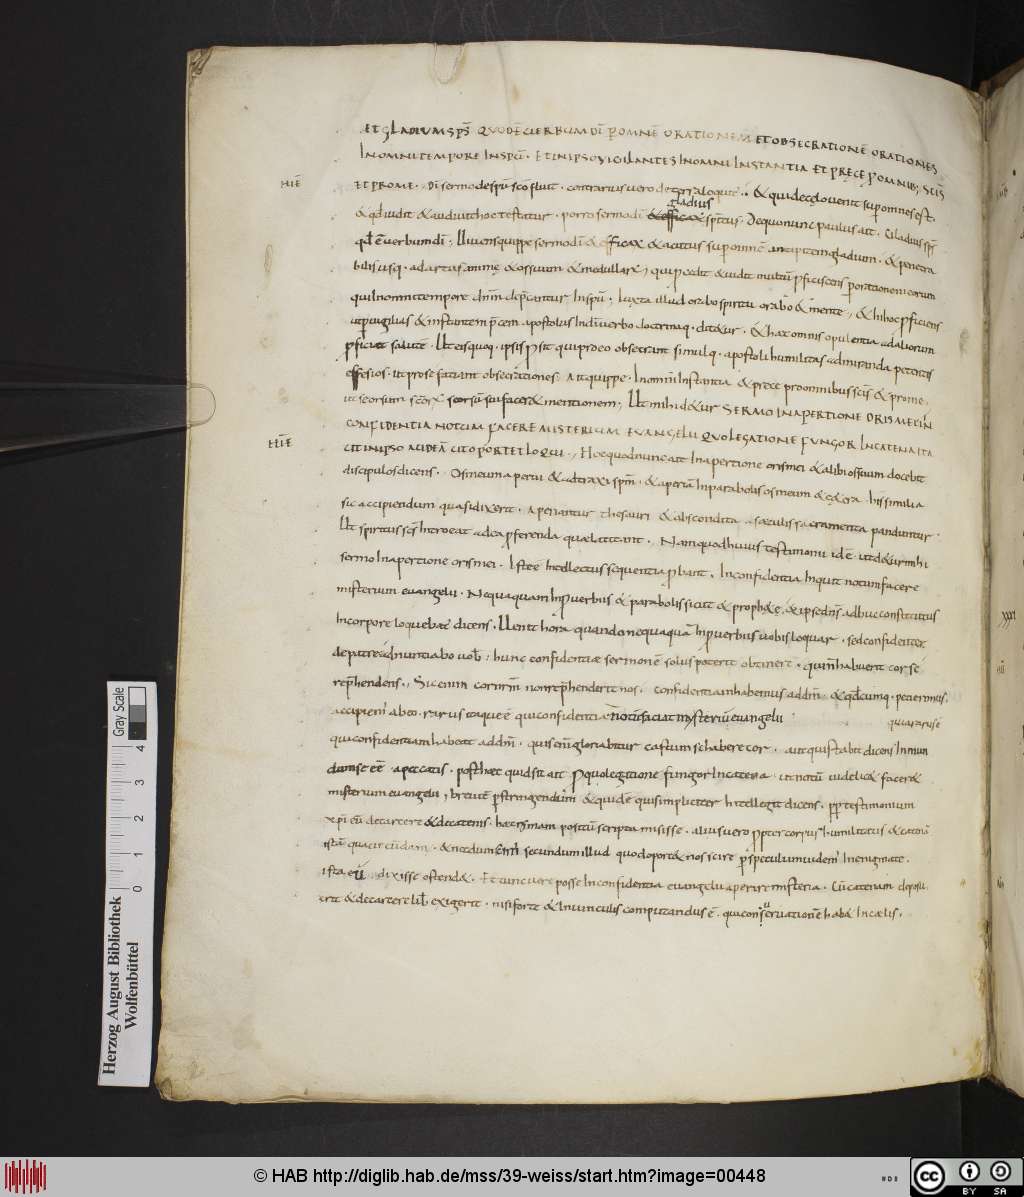 ET GLADIUM SPS QUOD Ē UERBUM DI P OMNĒ ORATIONEM ET OBSECRATIONĒ ORATIONES
IN OMNI TEMPORE IN SPU. ET IN IPSO UIGILANTES IN OMNI INSTANTIA ET PRECE P OMNIB; SCIS
HIE
ET PRO ME. Di sermo de spu sco fluit. contrarius uero de terra loquit. & qui de celo uenit sup omnes est.
gladius
& qd uidit & audiuit hoc testatur. porro sermo di & efficax spitus. De quo nunc paulus ait. Gladius sps
qd ē uerbum di; Uiuens quippe sermo di & efficax & acutus sup omnē ancipitem gladium. & penetra
bilis usq. ad artus animę & ossuum & medullarū
qui in omni tempore dnm depcantur in spu; Iuxta illud orabo spiritu orabo & mente, & in hoc pficiens
ut puigilias & instantem pcem apostolus in di uerbo doctrinaq. dit&ur. & hac omnis opulentia ad aliorum
pficiat salutē. Ut eis quoq. ipsis psit qui pro eo obsecrant simulq. apostoli humilitas admiranda petentis
effesios. ut pro se faciant obsecrationes. Ait quippe. In omni instantia & prece pro omnibus scis & pro me,
ut seorsum scorū seorsū sui facer& mentionem; Ut mihi d&ur SERMO IN APERTIONE ORIS MEI IN
CONFIDENTIA NOTUM FACERE MISTERIUM EUANGELII QUO LEGATIONE FUNGOR IN CATENA ITA
HIE
UT IN IPSO AUDEĀ UT OPORTET LOQUI. Hoc quod nunc ait in apertione oris mei & alibi ossuum docebit
discipulos dicens. Os meum aperui & adtraxi spm. & aperiā in parabolis os meum & c&era. his similia
sic accipiendum quasi dixerit. Aperiantur thesauri & abscondita a saeculis sacramenta panduntur.
Ut spiritus scs introeat ad ea pferenda quae latitant. Nam quod huius testimonii id ē. ut d&ur mihi
sermo in apertione oris mei. Iste ē intellectus sequentia pbant. In confidentia inquit notum facere
misterium euangelii. Nequaquam in puerbiis & parabolis sicut & proph&ę. & ipse dns. adhuc constitutus
in corpore loquebat dicens. Uenit hora quando nequaquā in puerbiis uobis loquar. sed confidenter
de patre adnuntiabo uob; hunc confidentiae sermonē solus poterit obtinere. quē n habuerit cor se
rephendens. Si enim cor nrm non rephenderit nos. confidentiam habemus ad dm. & qdcumq. petierimus.
accipiem ab eo. rarus itaque ē qui confidentia notū faciat mysteriū euangelii
quia rarus ē
qui confidentiam habeat ad dm. quis enī gloriabitur castum se habere cor. aut quis stabit dicens in mun
dum se eē a peccatis. post haec quid sit ait p quo legatione fungor in catena. ut notū iudeis & facer&
misterium euangelii, breuit pstringendum & quidē qui simpliciter intellegit dicens. pp testimonium
xpi eū de carcere & de catenis. hac in roma positū scripta misisse. alius uero ppter corpus humilitatis & catenā
istā qua circūdam. & necdum secundum illud quod oport& nos scire p speculum uidem in enigmate.
ista eū dixisse ostend&. Et tunc uere posse in confidentia euangelii aperire misteria. Cū catenam deposu
erit & de carcere lib exierit. nisi forte & in uinculis computandus ē. qui conseruationē hab& in caelis.
Gray Scale
4 3 2 1 0
Herzog August Bibliothek
Wolfenbüttel
© HAB http://diglib.hab.de/mss/39-weiss/start.htm?image=00448
cc BY SA